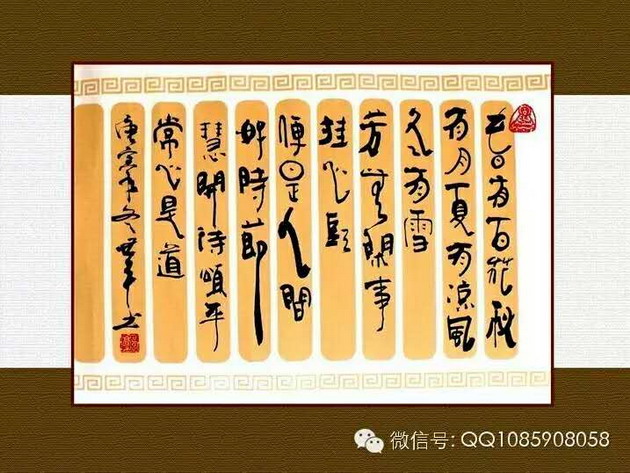 春有百花秋
有月夏有涼風
冬有雪
若無閑事
挂心頭
便是人間
好時節
慧開詩頌平
常心是道
庚寅年冬书
微信号: QQ1085908058